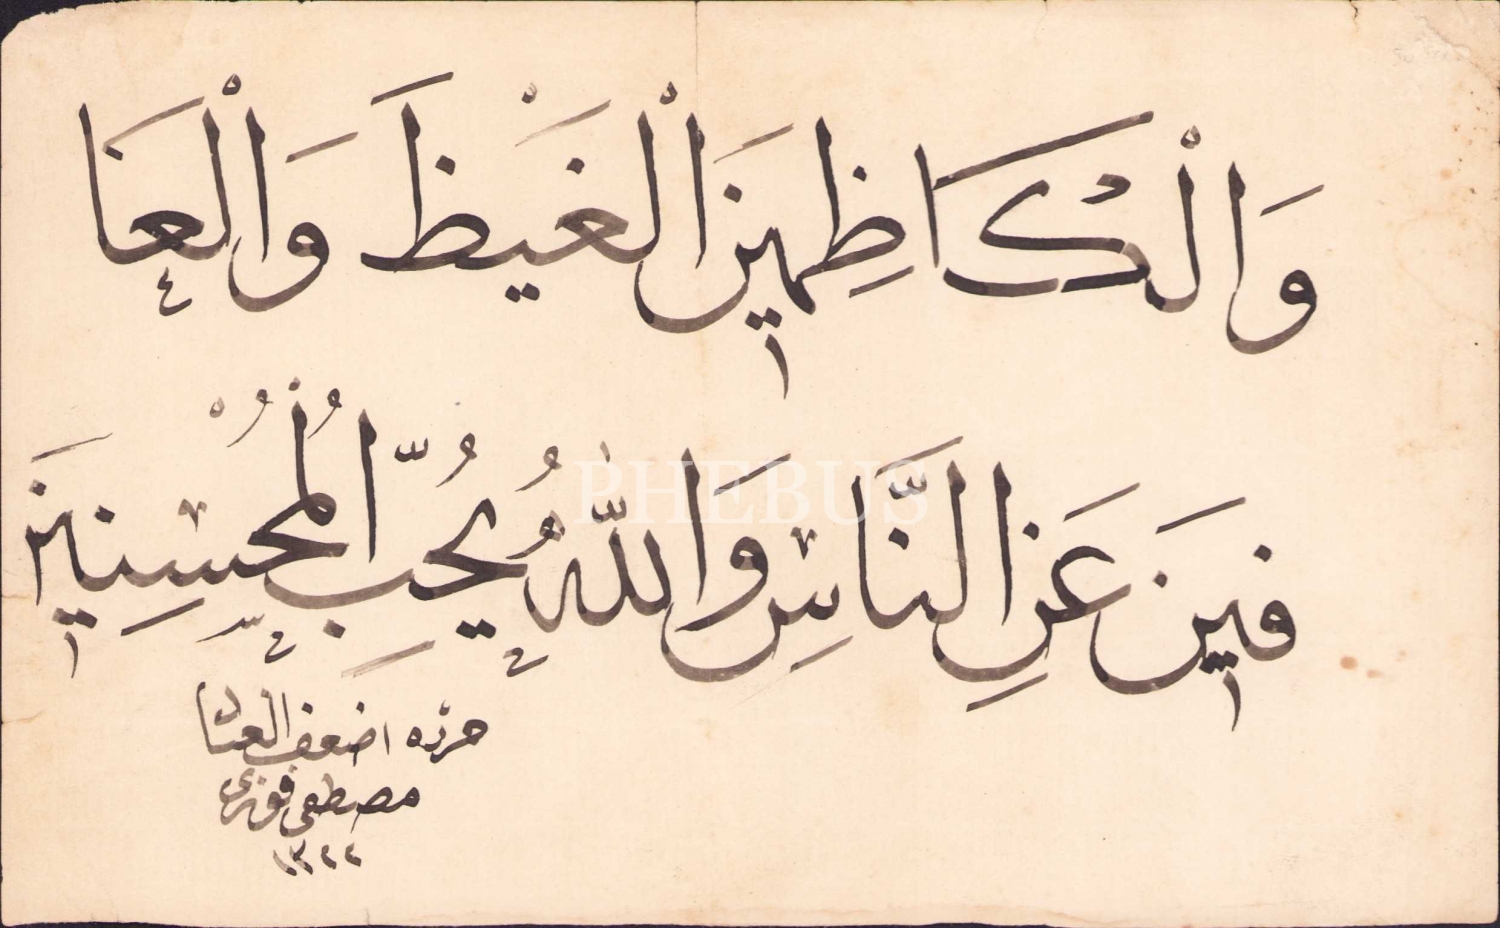 وَالْكَاظِمِينَ الْغَيْظَ وَالْعَا
فِينَ عَنِ النَّاسِ وَاللّٰهُ يُحِبُّ الْمُحْسِنِينَ
PHEBUS
حرره اضعف العباد
مصطفى فوزى
١٣٢٢